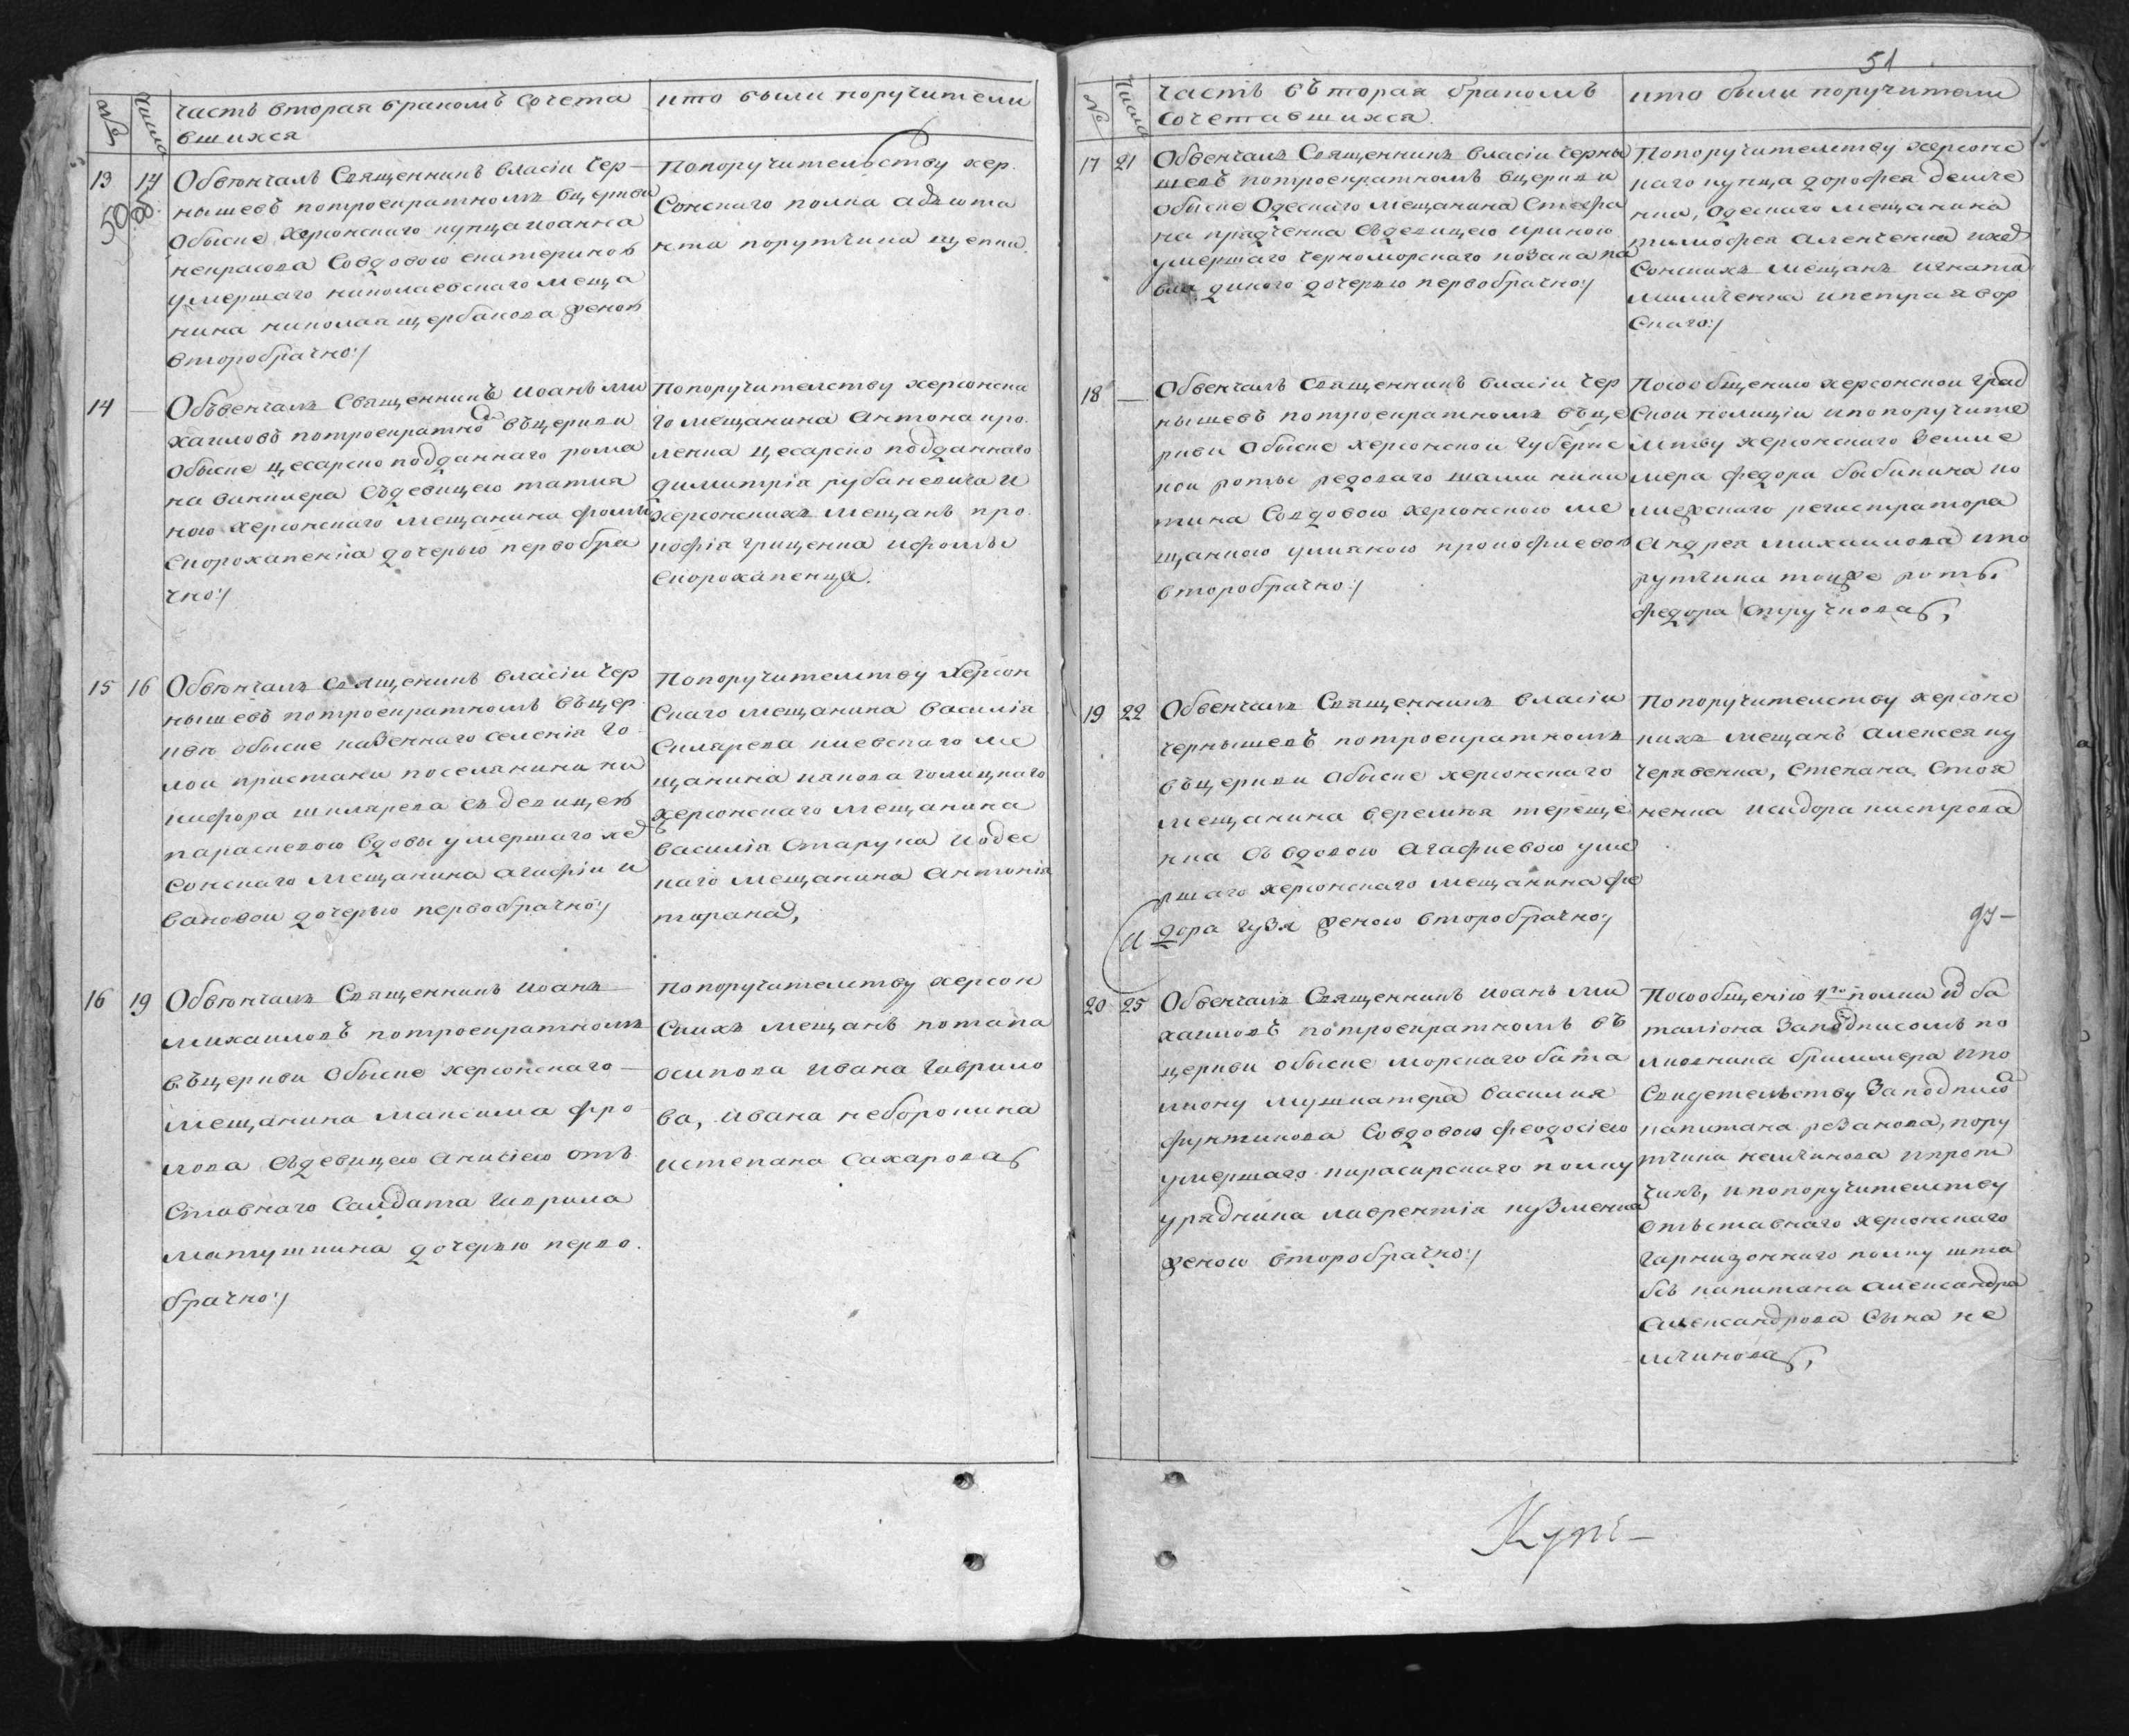 № Числа часть вторая бракомъ сочета
вшихся
кто были поручители
13 14 Обвѣнчалъ Священникъ власіи Чер
нышевъ потроекратномъ вцеркви
Обыске херсонскаго купца иоанна
некрасова Совдовою екатериною
умершаго николаевскаго меща
нина николая щербакова женою
второбрачно:/
Попоручительству хер
Сонскаго полка адъюта
нта порутчика щепки
14 — Обвенчалъ Священникъ иоанъ ми
хаиловъ потроекратно въцеркви
Обыске цесарско подданнаго рома
на винклера Съдевицею татия
ною херсонскаго мещанина фомы
Скорохапенка дочерью первобра
чно:/
Попоручителству херсонска
го мещанина Антона кро
ленка цесарско подданнаго
димитрія рубаневича и
херсонскихъ мещанъ про
кофія грищенка ифомы
Скорохапенка.
15 16 Обвѣнчалъ священикъ власіи чер
нышевъ потроекратномъ въцер
кви обыске казеннаго селенія го
лои пристани поселянина ни
кифора шкляревa съ девицею
параскевою вдовы умершаго хер
Сонскаго мещанина агафіи и
вановои дочерью первобрачно:/
Попоручителству Херсон
Скаго мещанина василія
Склярева киевскаго ме
щанина иякова голицкаго
херсонскаго мещанина
василія Старука иодес
каго мещанина Антонія
тарана,
16 19 Обвѣнчалъ Священникъ иоанъ
михаиловъ потроекратномъ
въцеркви Обыске херсонскаго
мещанина максима фро
лова Съдевицею анисіею отъ
Ставнаго Салдата гаврила
матушкина дочерью перво
брачно:/
Попоручителству херсон
Скихъ мещанъ потапа
осипова ивана гаврило
ва, ивана неборокина
истепана сахарова
51
№ Числа Часть въторая бракомъ
Сочетавшихся.
кто были поручители
17 21 Обвенчалъ Священникъ власіи черны
шевъ потроекратномъ вцеркви
обыске Одескаго мещанина Стефа
на прядченка Съдевицею ириною
умершаго черноморскаго козака па
вла дикого дочерью первобрачно:/
Попоручителству херсонс
каго купца дорофея демче
нка, Одескаго мещанина
тимофея аленченка ихер
Сонскихъ мещанъ игната
мимченка ипетра явор
Скаго:/
18 — Обвенчалъ священникъ власіи чер
нышевъ потроекратномъ въце
ркви Обыске херсонскои губернс
кои роты редоваго шами ники
тина Совдовою херсонскою ме
щанкою улияною прокофиевою
второбрачно:/
Посообщению херсонскои град
Скои полиціи ипопоручите
лству херсонскаго земле
мера федора быбикина ко
лежскаго регистратора
Андрея михаилова ипо
рутчика тоиже роты
федора Стручкова,
19 22 Обвенчалъ Священникъ власіи
чернышевъ потроекратномъ
въцеркви Обыске херсонскаго
мещанина веремѣя тереще
нка Съ вдовою агафиевою уме
ршаго херсонскаго мещанина фе
дора гузя женою второбрачно:/
Попоручителству херсонс
кихъ мещанъ алексея ку
черявенка, степана Стоя
ненка исидора кистрова
20 25 Обвенчалъ Священникъ иоанъ ми
хаиловъ потроекратномъ въ
церкви обыске морскаго бата
лиону мушкатера василия
фунтикова Совдовою феодосіею
умершаго кирасирскаго полку
урядника лаврентія кузменка
женою второбрачно:/
Посообщенію 4го полка ба
таліона Заподписомъ по
лковника бриммера ипо
Свидетельству Заподписом
капитана резанова, пору
тчика немчинова ипрот
чихъ, ипопоручителству
отъставнаго херсонскаго
гарнизоннаго полку шта
бсъ капитана александра
Александрова Сына не
мчинова,